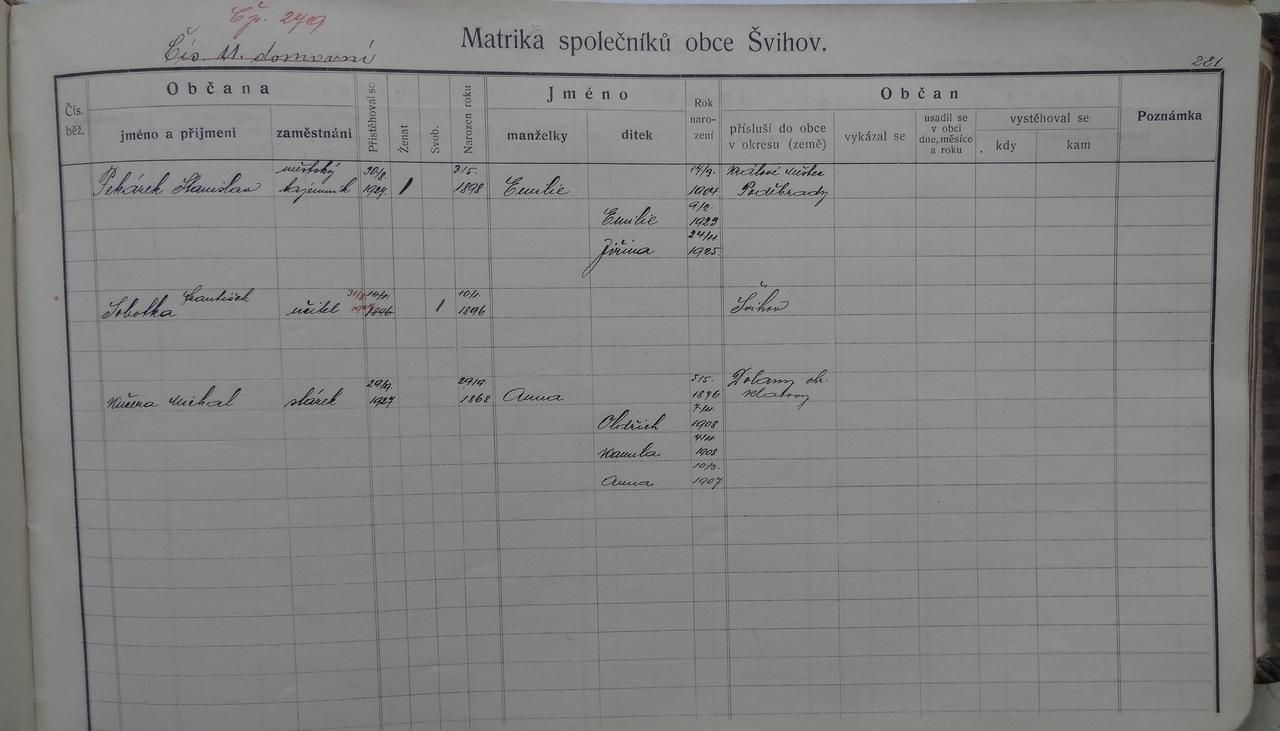 Čp. 249
Čís 11. domovní
Matrika společníků obce Švihov.
281
Čís. běž.
Občana
jméno a přijmení
zaměstnání
Přistěhoval se
Ženat
Svob.
Narozen roku
Jméno
manželky
dítek
Rok naro- zení
Občan
přísluší do obce v okresu (země)
vykázal se
usadil se v obci dne, měsíce a roku
vystěhoval se
kdy
kam
Poznámka
městský 30/8. 3/5. 14/9. Králové Městec
Pekárek Stanislav 1927. 1898 Emilie 1904 Poděbrady
9/2.
Emilie 1923
24/11
Jiřina 1925
František 10/1. 10/1.
Sobotka učitel 1896 1896 Švihov
29/9. 29/9 5/5. Dolany okr.
Kučera Michal stárek 1927 1868 Anna 1876 Klatovy
Oldřich 1908
Kamila 1908
10/9.
Anna 1907